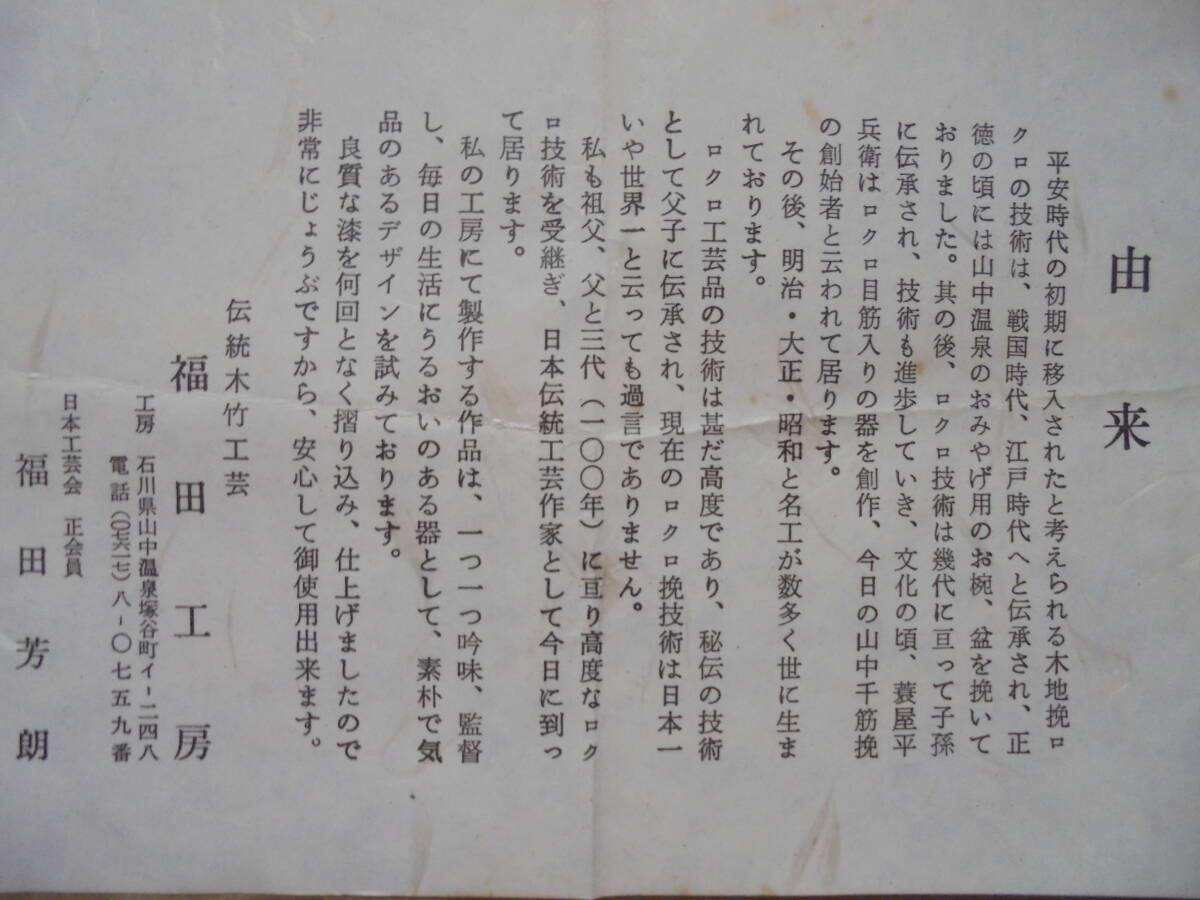 由来
平安時代の初期に移入されたと考えられる木地挽ロ
クロの技術は、戦国時代、江戸時代へと伝承され、正
徳の頃には山中温泉のおみやげ用のお椀、盆を挽いて
おりました。其の後、ロクロ技術は幾代に亘って子孫
に伝承され、技術も進歩していき、文化の頃、蓑屋平
兵衛はロクロ目筋入りの器を創作、今日の山中千筋挽
の創始者と云われて居ります。
その後、明治・大正・昭和と名工が数多く世に生ま
れております。
ロクロ工芸品の技術は甚だ高度であり、秘伝の技術
として父子に伝承され、現在のロクロ挽技術は日本一
いや世界一と云っても過言でありません。
私も祖父、父と三代(一〇〇年)に亘り高度なロク
ロ技術を受継ぎ、日本伝統工芸作家として今日に到っ
て居ります。
私の工房にて製作する作品は、一つ一つ吟味、監督
し、毎日の生活にうるおいのある器として、素朴で気
品のあるデザインを試みております。
良質な漆を何回となく摺り込み、仕上げましたので
非常にじょうぶですから、安心して御使用出来ます。
伝統木竹工芸
福田工房
工房 石川県山中温泉塚谷町イー二四八
電話(〇七六一七)八-〇七五九番
日本工芸会 正会員
福田芳朗